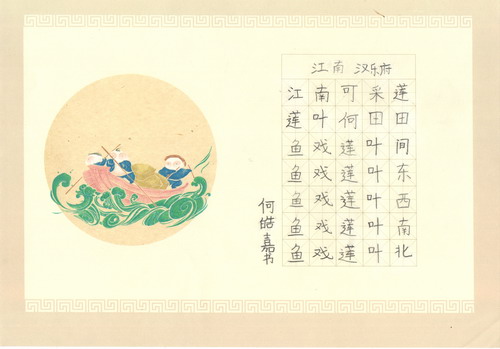 江南 汉乐府
江南可采莲
莲叶何田田
鱼戏莲叶间
鱼戏莲叶东
鱼戏莲叶西
鱼戏莲叶南
鱼戏莲叶北
何皓嘉书